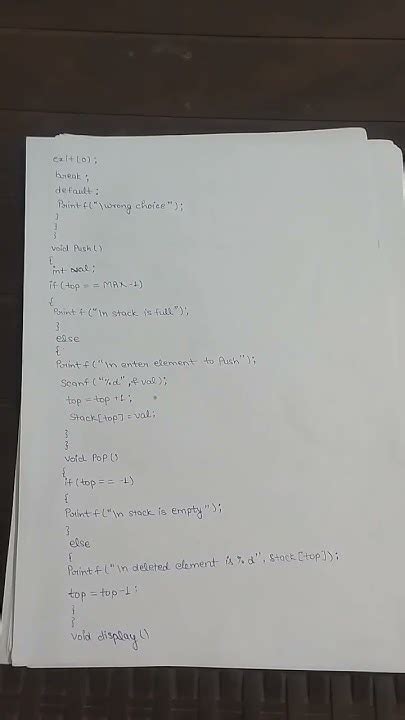 exit(0);
break;
default:
Printf("\wrong choice");
}
}
}
void Push()
{
int val;
if(top == MAX-1)
{
Printf("\n stack is full");
}
else
{
Printf("\n enter element to Push");
Scanf("%d", &val);
top = top +1;
Stack[top] = val;
}
}
void Pop()
{
if(top == -1)
{
Printf("\n stack is empty");
}
else
{
Printf("\n deleted element is %d", Stack[top]);
top = top-1:
}
}
void display()